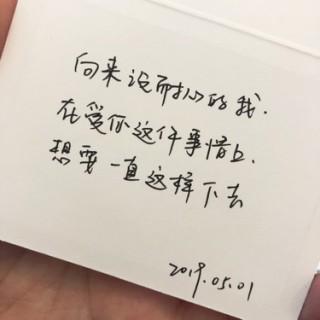 向来没耐心的我.
在爱你这件事情上.
想要一直这样下去
2019.05.01